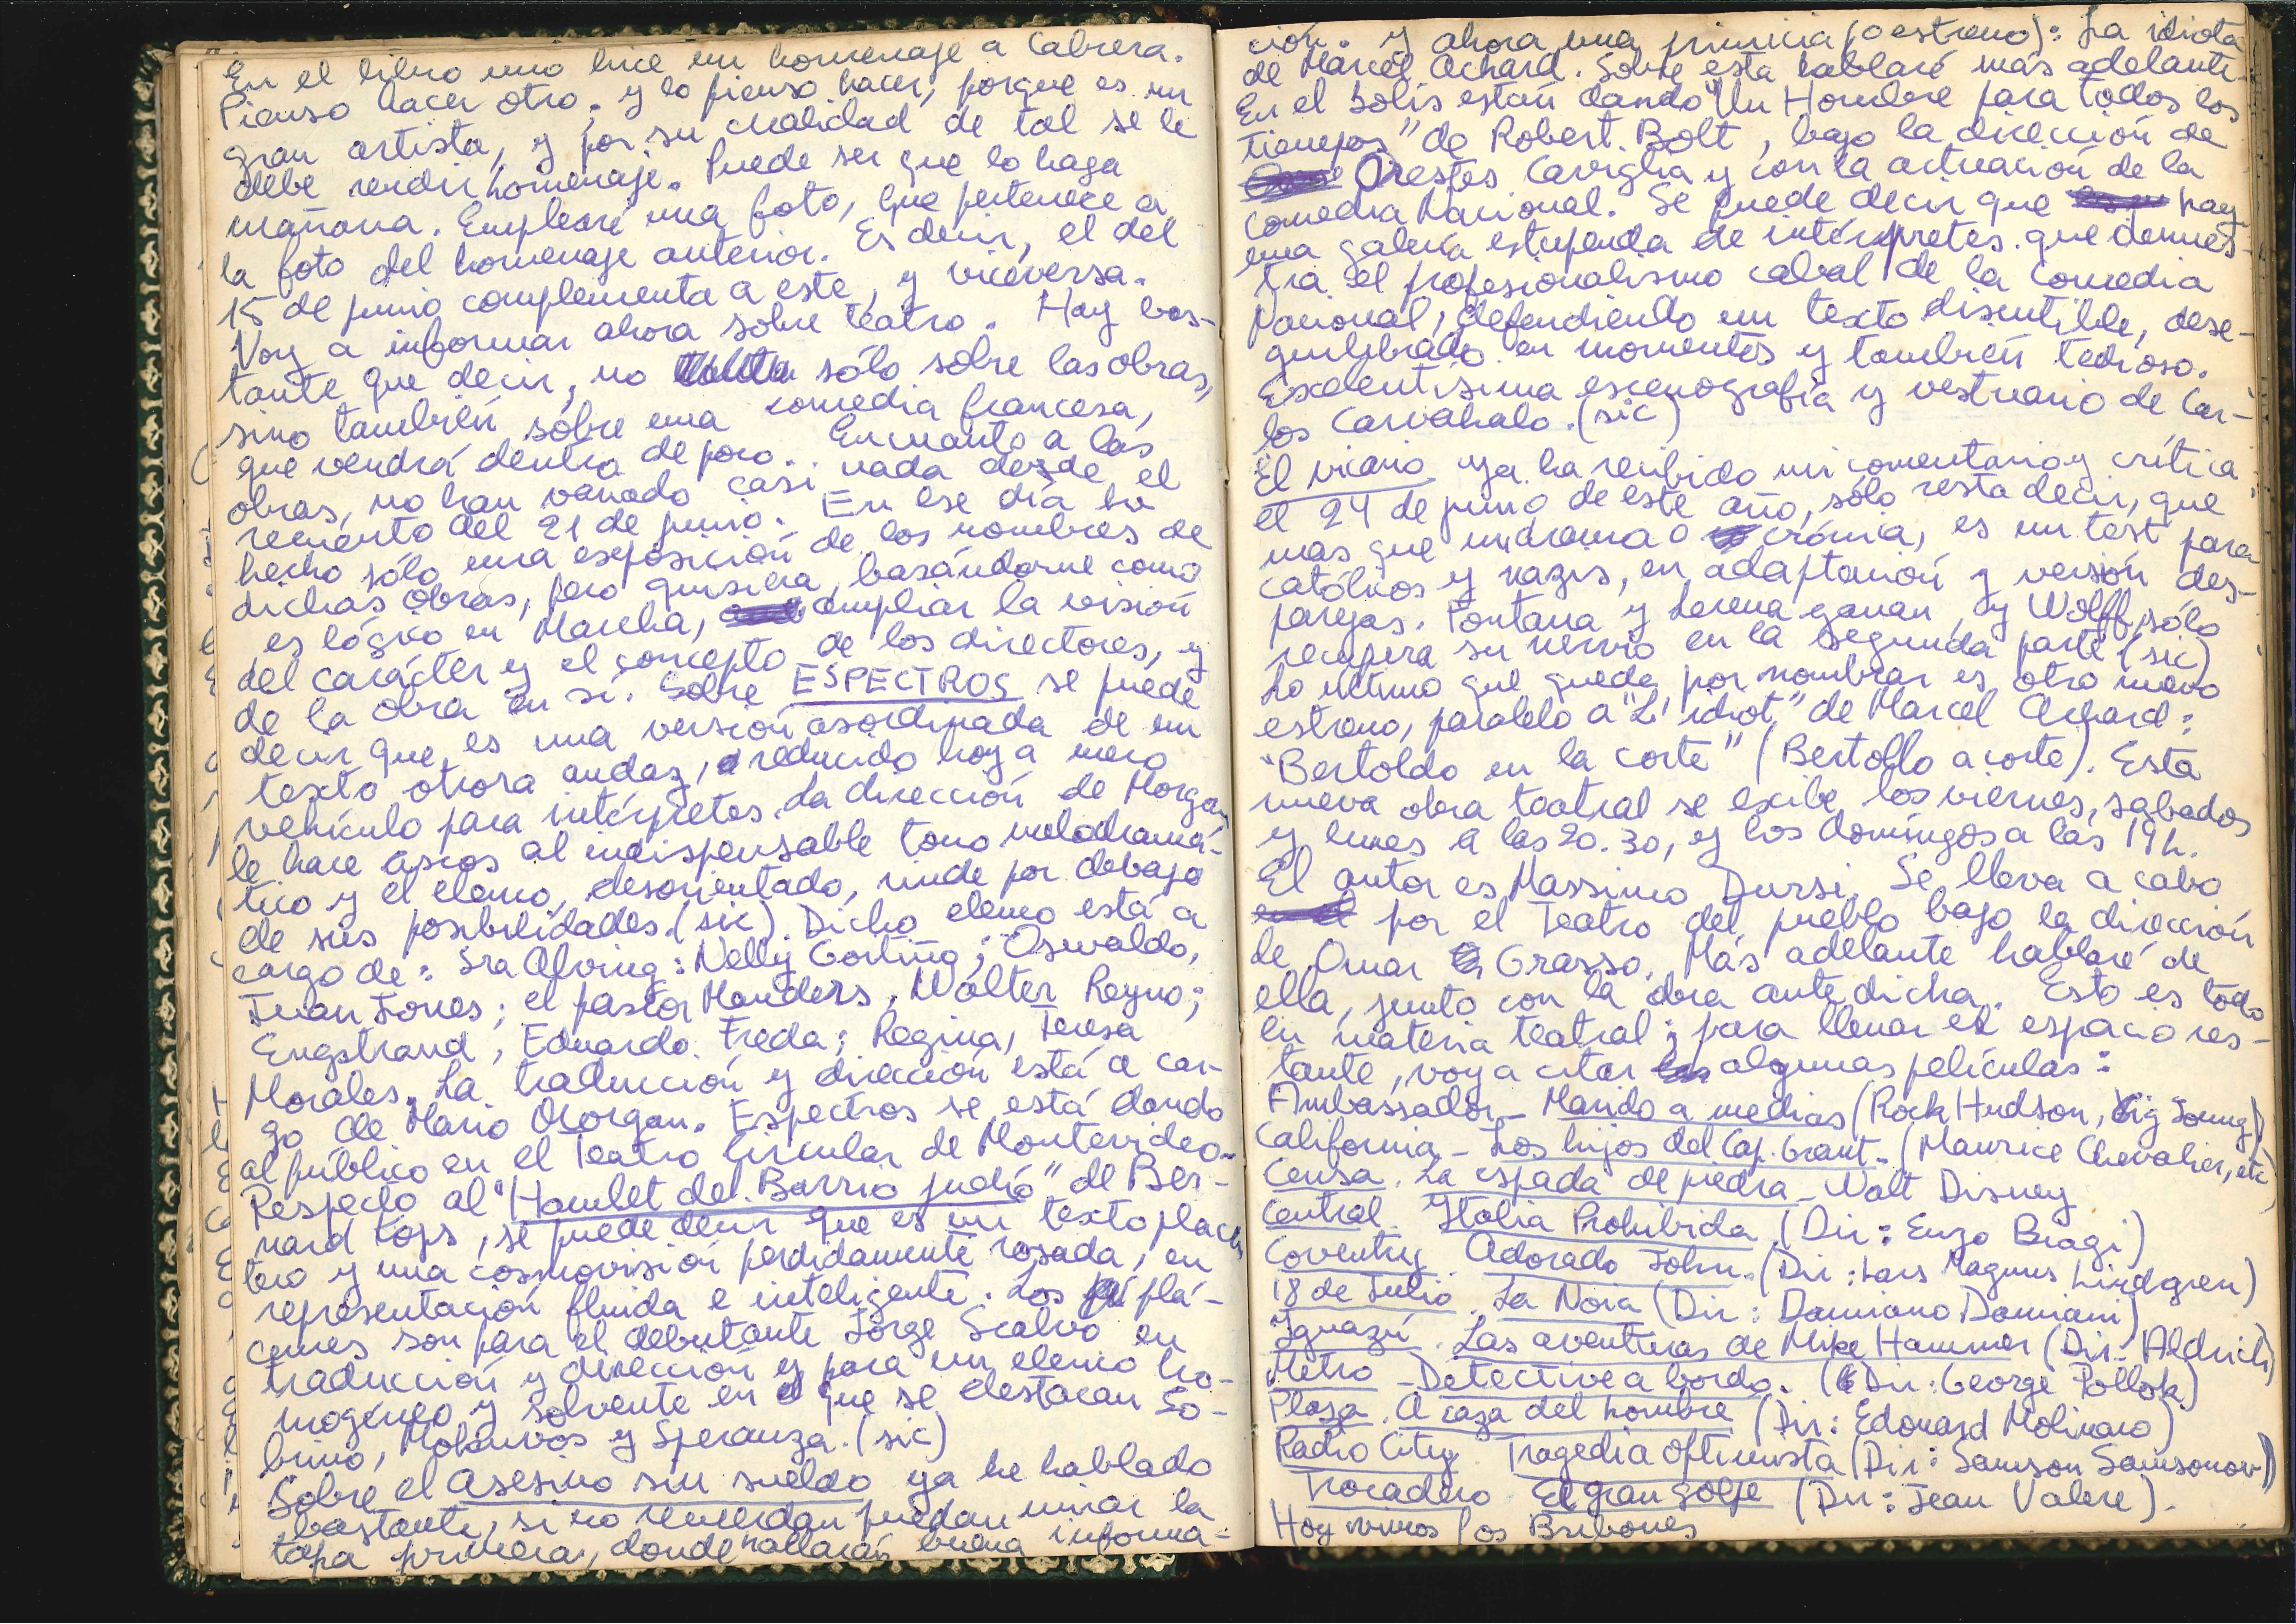 En el libro uno hice un homenaje a Cabrera.
Pienso hacer otro, y lo pienso hacer, porque es un
gran artista, y por su cualidad de tal se le
debe rendir homenaje. Puede ser que lo haga
mañana. Emplearé una foto, que pertenece a
la foto del homenaje anterior. Es decir, el del
15 de junio complementa a este, y viceversa.
Voy a informar ahora sobre teatro. Hay bas-
tante que decir, no sólo sobre las obras,
sino también sobre una comedia francesa,
que vendrá dentro de poco. En cuanto a las
obras, no han variado casi nada desde el
recuento del 21 de junio. En ese día he
hecho sólo una esposición de los nombres de
dichas obras, pero quisiera, basándome como
es lógico en Marcha, ampliar la visión
del carácter y el concepto de los directores, y
de la obra en sí. Sobre ESPECTROS se puede
decir que es una versión asordinada de un
texto otrora audaz, reducido hoy a mero
vehículo para intérpretes. La dirección de Morgan
le hace ascos al indispensable tono melodramá-
tico y el elenco, desorientado, rinde por debajo
de sus posibilidades. (sic). Dicho elenco está a
cargo de: Sra Alving: Nelly Goitiño; Oswaldo,
Juan Jones; el pastor Manders, Walter Reyno;
Engstrand, Eduardo Freda; Regina, Teresa
Morales. La traducción y dirección está a car-
go de Mario Morgan. Espectros se está dando
al público en el Teatro Circular de Montevideo.
Respecto al "Hamlet del Barrio judío" de Ber-
nard Kops, se puede decir que es un texto placen
tero y una cosmovisión perdidamente rosada, en
representación fluida e inteligente. Los plá-
cemes son para el debutante Jorge Scalvo en
traducción y dirección y para un elenco ho-
mogéneo y solvente en el que se destacan So-
brino, y Speranza. (sic)
Sobre el Asesino sin sueldo ya he hablado
bastante, si no recuerdan puedan mirar la
tapa primera, donde hallarás buena informa-
ción. Y ahora una primicia (o estreno): La idiota
de Marcel Achard. Sobre esta hablaré más adelante.
En el Solís están dando "Un Hombre para todos los
tiempos" de Robert Bolt, bajo la dirección de
Orestes Caviglia y con la actuación de la
Comedia Nacional. Se puede decir que hay
una galería estupenda de intérpretes que demues-
tra el profesionalismo cabal de la Comedia
Nacional, defendiendo un texto discutible, dese-
quilibrado en momentos y también tedioso.
Excelentísima escenografía y vestuario de Car-
los Carvahalo. (sic)
El vicario ya ha recibido mi comentario y crítica
el 24 de junio de este año, sólo resta decir, que
mas que un drama o crónica, es un test para
católicos y nazis, en adaptación y versión des-
parejas. Fontana y Lerena ganan, y Wolff, sólo
recupera su nervio en la segunda parte. (sic)
Lo último que queda por nombrar es otro nuevo
estreno, paralelo a "L' idiot" de Marcel Achard:
"Bertoldo en la corte" (Bertoldo a corte). Esta
nueva obra teatral se exibe los viernes, sábados
y lunes a las 20.30, y los domingos a las 19h.
El autor es Massimo Dursi. Se lleva a cabo
por el Teatro del pueblo bajo la dirección
de Omar Grasso. Más adelante hablaré de
ella, junto con la obra antedicha. Esto es todo
en materia teatral; para llenar el espacio res-
tante, voy a citar algunas películas:
Ambassador - Marido a medias (Rock Hudson, Gig Young)
California - Los hijos del Cap. Grant - (Maurice Chevalier, etc)
Censa. La espada de piedra - Walt Disney
Central. Italia Prohibida. (Dir: Enzo Biagi)
Coventry. Adorado John. (Dir: Lars Magnus Lindgren)
18 de Julio. La Noia (Dir: Damiano Damiani)
Iguazú. Las aventuras de Mike Hammer (Dir: Aldrich)
Metro - Detective a bordo. (Dir: George Pollok)
Plaza. A caza del hombre (Dir: Edouard Molinaro)
Radio City. Tragedia Optimista (Dir: Samson Samsonov)
Trocadero El gran golpe (Dir: Jean Valere).
Hoy vimos los Bribones